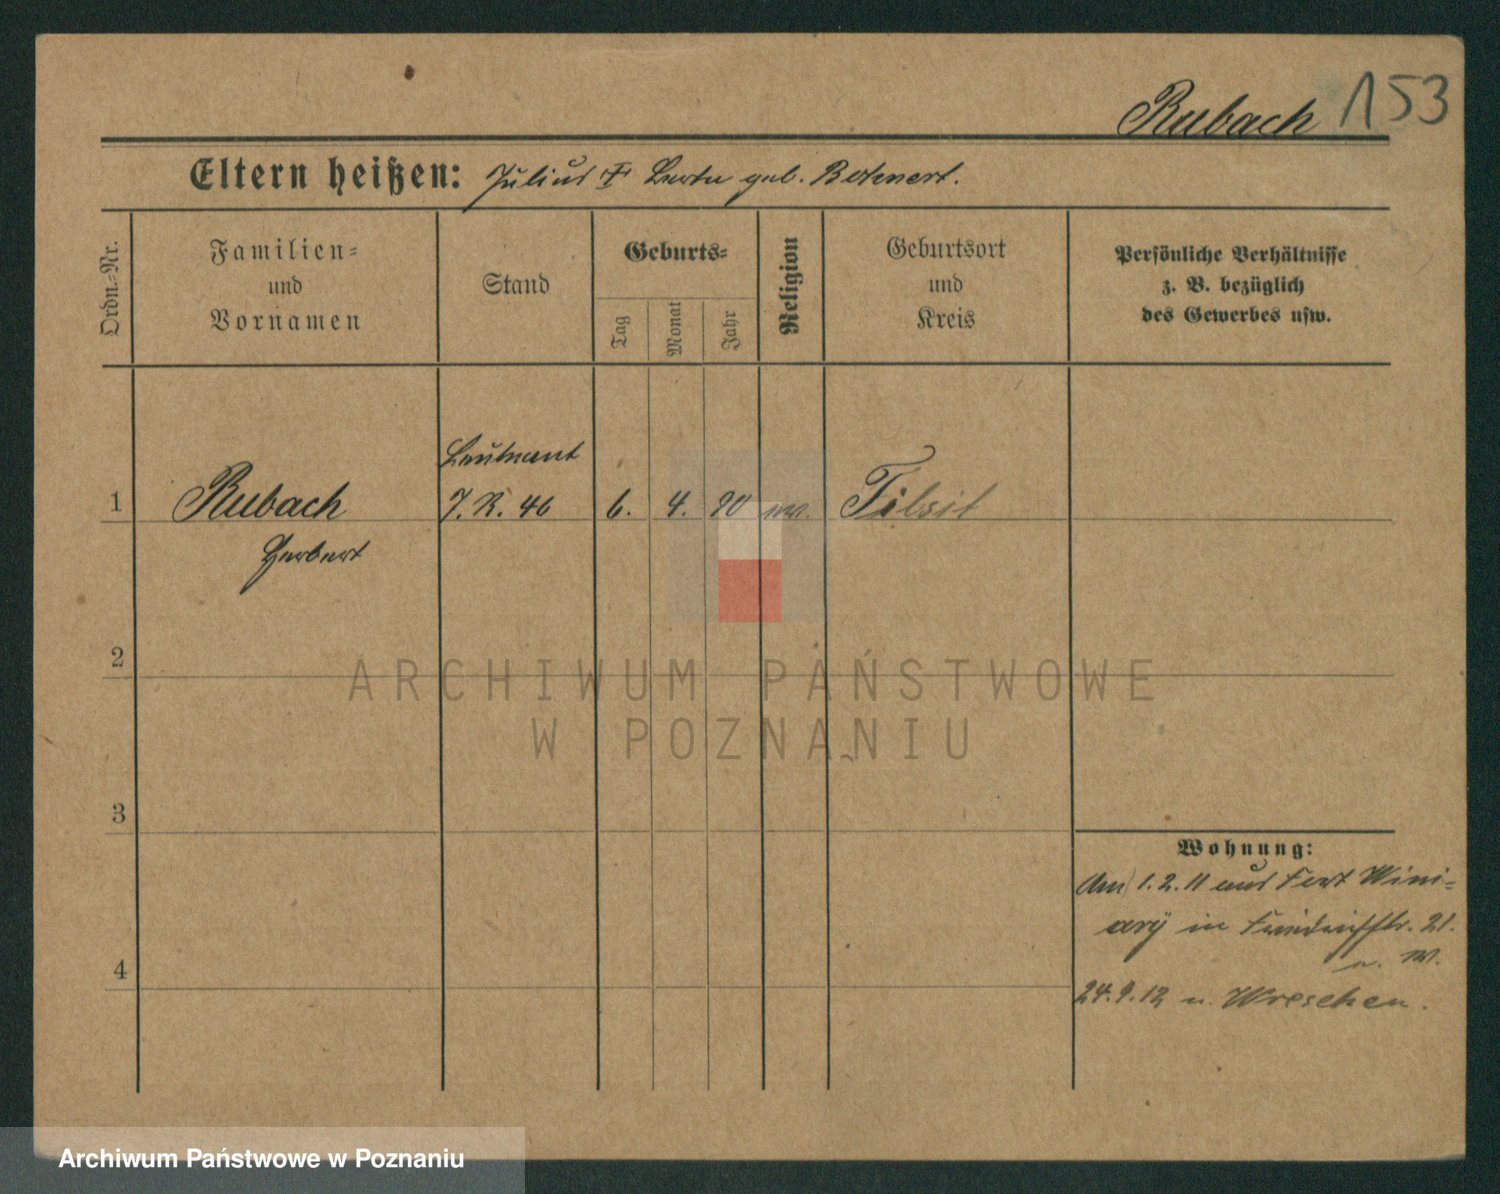 Rubach 153
Eltern heißen: Julius † geb. Bohnert.
Ordn.-Nr.
Familien=
und
Vornamen
Stand
Geburts=
Tag
Monat
Jahr
Religion
Geburtsort
und
Kreis
Persönliche Verhältnisse
z. B. bezüglich
des Gewerbes usw.
Leutnant
1 Rubach J. R. 46 6. 4. 90 ev. Tilsit
Herbert
2
ARCHIWUM PAŃSTWOWE
W POZNANIU
3
Wohnung:
Am 1.2.11 aus Fort Wini=
ary in Friedrichstr. 21.
4
24.9.12 n. Wreschen.
Archiwum Państwowe w Poznaniu